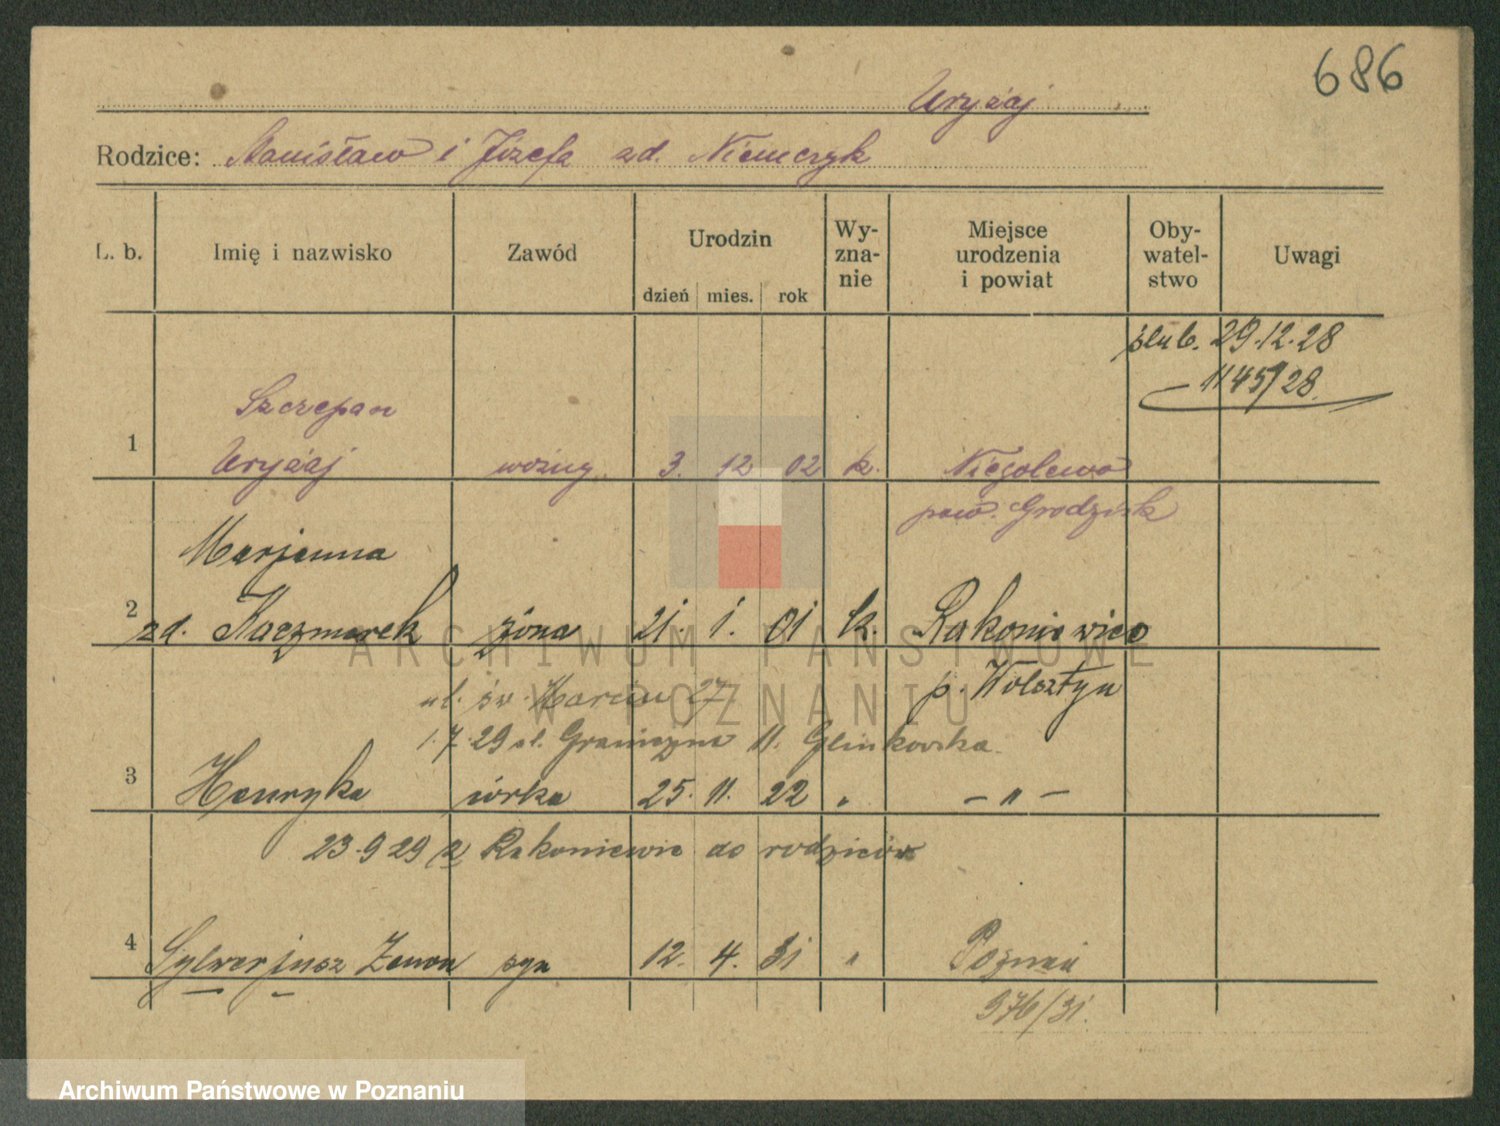 686
Uryzaj
Rodzice: Stanisław i Józefa zd. Niemczyk
L. b. Imię i nazwisko Zawód Urodzin dzień mies. rok Wy-zna-nie Miejsce urodzenia i powiat Oby-watel-stwo Uwagi
ślub. 29.12.28
1145/28
Szczepan
1 Uryzaj woźny 3. 12 02 k. Niegolewo
pow. Grodzisk
Marjanna
2 zd. Kaczmarek żona 21. 1. 01 k. Rakoniewice
p. Wolsztyn
ul. św. Marcin 27
1.7.29 ul. Graniczna 11. Glinkowska
3 Henryka córka 25. 11. 22 " — " —
23.9.29 z Rakoniewic do rodziców
4 Sylwerjusz Zenon syn 12. 4. 31 " Poznań
976/31.
ARCHIWUM PAŃSTWOWE
W POZNANIU
Archiwum Państwowe w Poznaniu